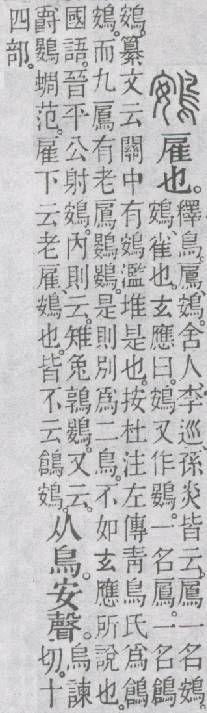 鴳雇也。釋鳥。鳸鴳。舍人、李巡、孫炎皆云。鳸一名鴳。
鴳、雀也。玄應曰。鴳又作鷃。一名鳸。一名鶬
鴳。纂文云關中有鴳濫堆是也。按杜注左傳靑鳥氏爲鶬
鴳。而九鳸有老鳸鷃鷃。是則別爲二鳥。不如玄應所說也。
國語。晉平公射鴳。內則云雉兔鶉鷃。又云。
爵鷃蜩范。雇下云老雇、鴳也。皆不云鶬鴳。从鳥。安聲。烏諫
切。十
四部。